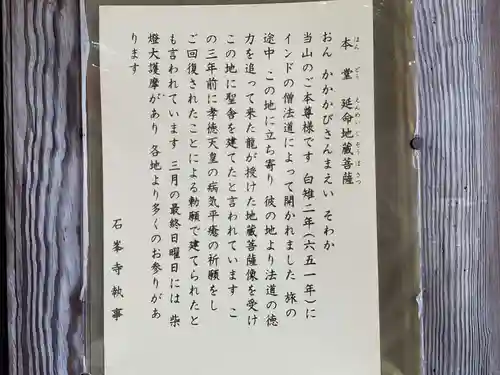 本堂 延命地蔵菩薩
ほん どう えんめい じ ぞう ぼ さつ
おん かかかびさんまえい そわか
当山のご本尊様です 白雉二年(六五一年)に
インドの僧法道によって開かれました 旅の
途中 この地に立ち寄り 彼の地より法道の徳
力を追って来た龍が授けた地蔵菩薩像を受け
この地に聖舎を建てたと言われています こ
の三年前に孝徳天皇の病気平癒の祈願をし
ご回復されたことによる勅願で建てられたと
も言われています 三月の最終日曜日には 柴
燈大護摩があり 各地より多くのお参りがあ
ります
石峯寺執事